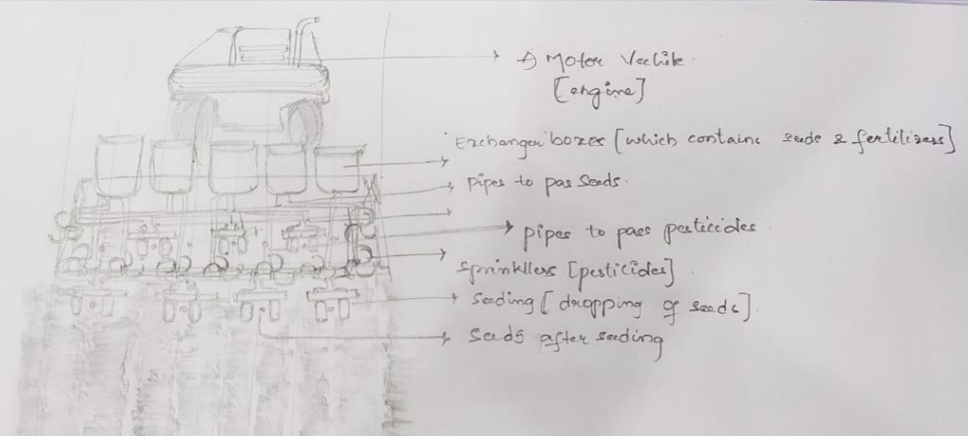 A) Motor Vechile
[engine]
Exchanger boxes [which contains seeds & fertilizers]
pipes to pas seeds.
pipes to pass pesticides
Sprinkllers [pesticides]
Seeding [dropping of seeds].
seeds after seeding